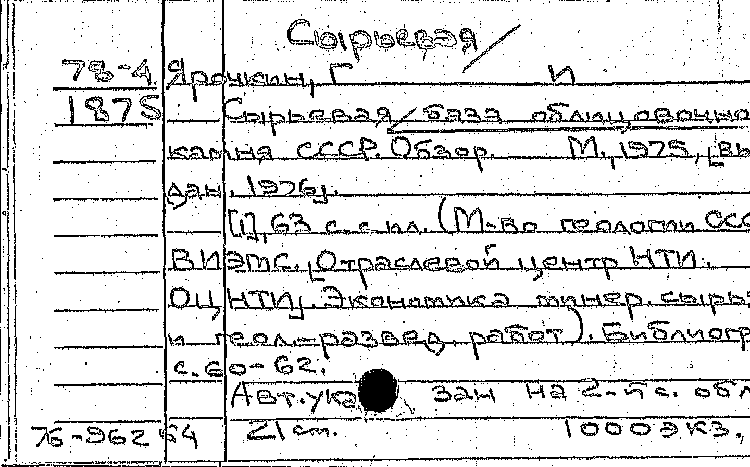 Сырьевая/
78-4 Ярочкин, Г И
1875 Сырьевая/база облицовочно
камня СССР. Обзор. М., 1975, [вы
дан. 1976].
[1], 63 с. с ил. (М-во геологии ССС
ВИЭМС. [Отраслевой центр НТИ.
ОЦНТИ]. Экономика минер. сырья
и геол.-развед. работ). Библиогр
с. 60-62.
Авт. ука зан на 2-й с. обл
76-962 64 21 см. 1000 экз.